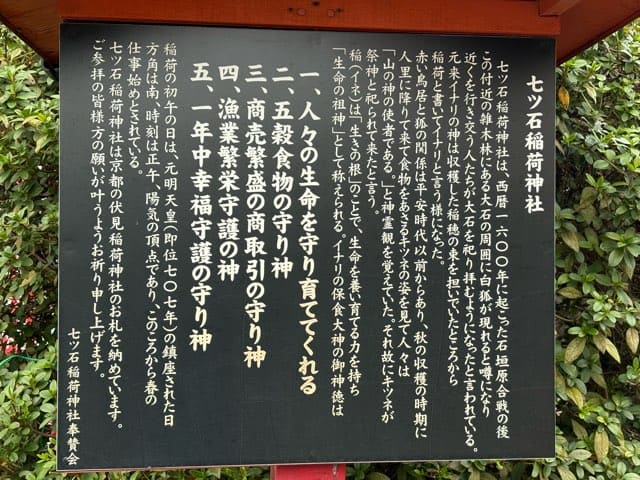 七ツ石稲荷神社
七ツ石稲荷神社は、西暦一六〇〇年に起こった石垣原合戦の後
この付近の雑木林にある大石の周囲に白狐が現れると噂になり
近くを行き交う人たちが大石を祀り拝むようになったと言われている。
元来イナリの神は収穫した稲穂の束を担いでいたところから
稲荷と書いてイナリと言う様になった。
赤い鳥居と狐の関係は平安時代以前からあり、秋の収穫の時期に
人里に降りて来て食物をあさるキツネの姿を見て人々は
「山の神の使者である。」と神霊観を覚えていた。それ故にキツネが
祭神と祀られて来たと言う。
稲(イネ)は「生きの根」のことで、生命を養い育てる力を持ち
「生命の祖神」として称えられる。イナリの保食大神の御神徳は
一、人々の生命を守り育ててくれる
二、五穀食物の守り神
三、商売繁盛の商取引の守り神
四、漁業繁栄守護の神
五、一年中幸福守護の守り神
稲荷の初午の日は、元明天皇(即位七〇七年)の鎮座された日
方角は南、時刻は正午、陽気の頂点であり、このころから春の
仕事始めとされている。
七ツ石稲荷神社は京都の伏見稲荷神社のお札を納めています。
ご参拝の皆様方の願いが叶うようお祈り申し上げます。
七ツ石稲荷神社奉賛会